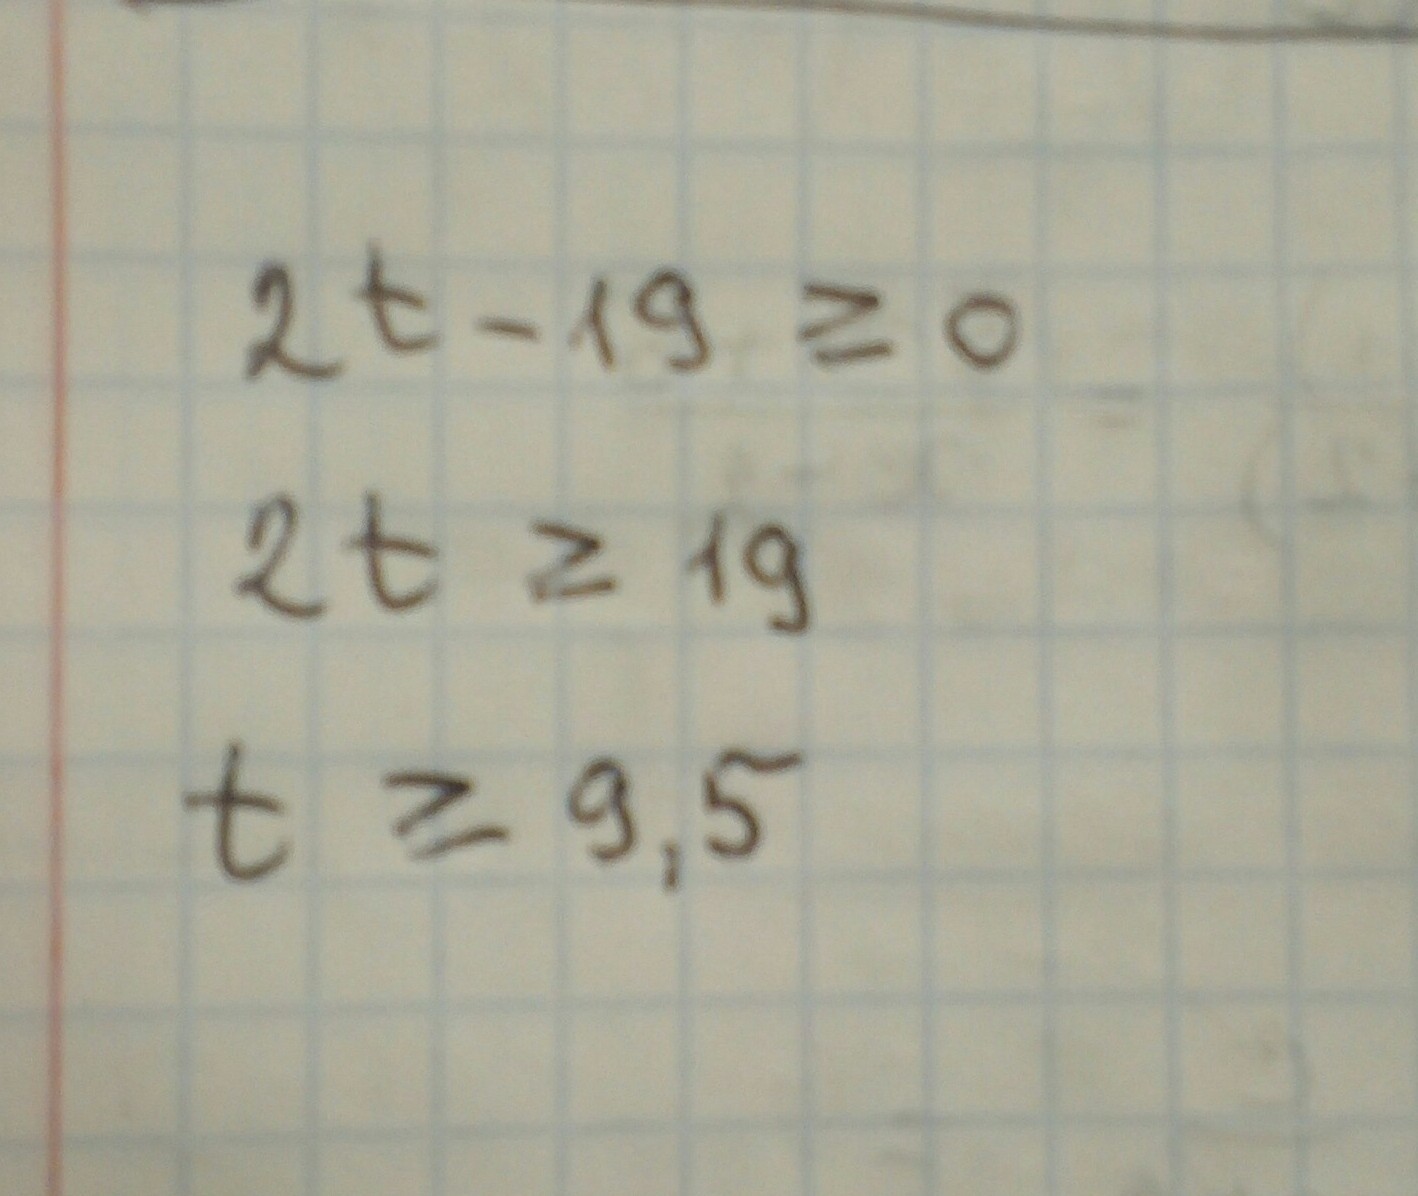 2t - 19 ≥ 0
2t ≥ 19
t ≥ 9,5